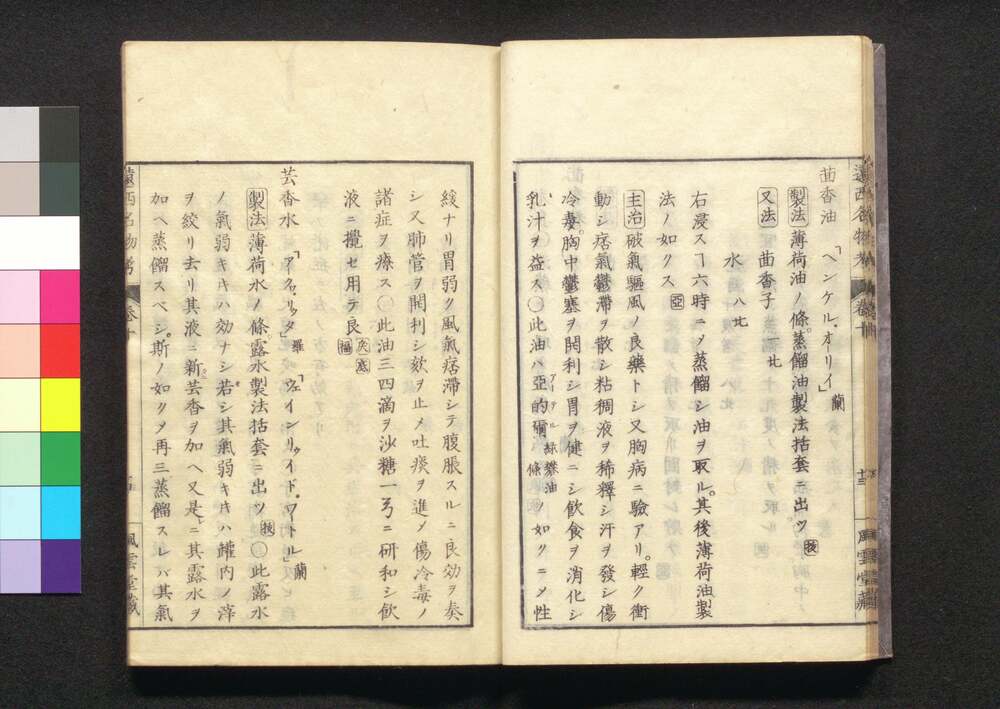 茴香油「ヘンケル、オーリイ」蘭
製法 薄荷油ノ條。蒸餾油製法括套ニ出ツ
又法 茴香子
水 八
右浸スヿ六時ニメ蒸餾シ油ヲ取ル。其後薄荷油製
法ノ如クス 亞
主治 破氣驅風ノ良藥トシ又胸病ニ驗アリ。輕ク衝
動シ痞氣鬱滯ヲ散シ粘稠液ヲ稀釋シ汗ヲ發シ傷
冷毒。胸中鬱塞ヲ開利シ胃ヲ健ニシ飲食ヲ消化シ
乳汁ヲ益ス○此油ハ亞的爾 條ノ如クニメ性
遠西名物考 卷十 十三 風雲堂藏
緩ナリ胃弱ク風氣痞滯シテ腹脹スルニ良効ヲ奏
シ又肺管ヲ開利シ欬ヲ止メ吐痰ヲ進メ傷冷毒ノ
諸症ヲ療ス○此油三四滴ヲ沙糖一弓ニ研和シ飲
液ニ攪セ用テ良
芸香水「アクア、リュタ」羅「ウェインリゥイド、ワトル」蘭
製法 薄荷水ノ條。露水製法括套ニ出ツ ○此露水
ノ氣弱キハ効ナシ若シ其氣弱キ片ハ罐内ノ滓
ヲ絞リ去リ其液ニ新芸香ヲ加ヘ又是ニ其露水ヲ
加ヘ蒸餾スベシ。斯ノ如クヲ再三蒸餾スレバ其氣
遠西名物考 卷十 風雲堂藏